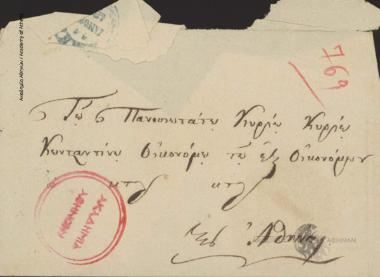 697
Τῷ Πανοσιωτάτῳ Κυρίῳ Κυρίῳ
Κωνσταντίνῳ Οἰκονόμῳ τῷ ἐξ Οἰκονόμων
κτλ κτλ
Εἰς Ἀθήνας
ΑΚΑΔΗΜΙΑ
ΑΘΗΝΩΝ
Ακαδημία Αθηνών / Academy of Athens